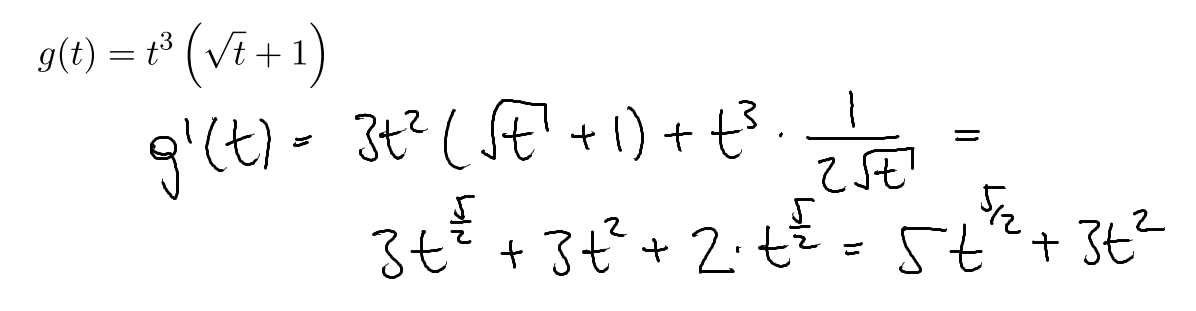 g(t) = t³ (√t + 1)
g'(t) = 3t² (√t + 1) + t³ · 1/(2√t) =
3t^(5/2) + 3t² + 2 · t^(5/2) = 5t^(5/2) + 3t²